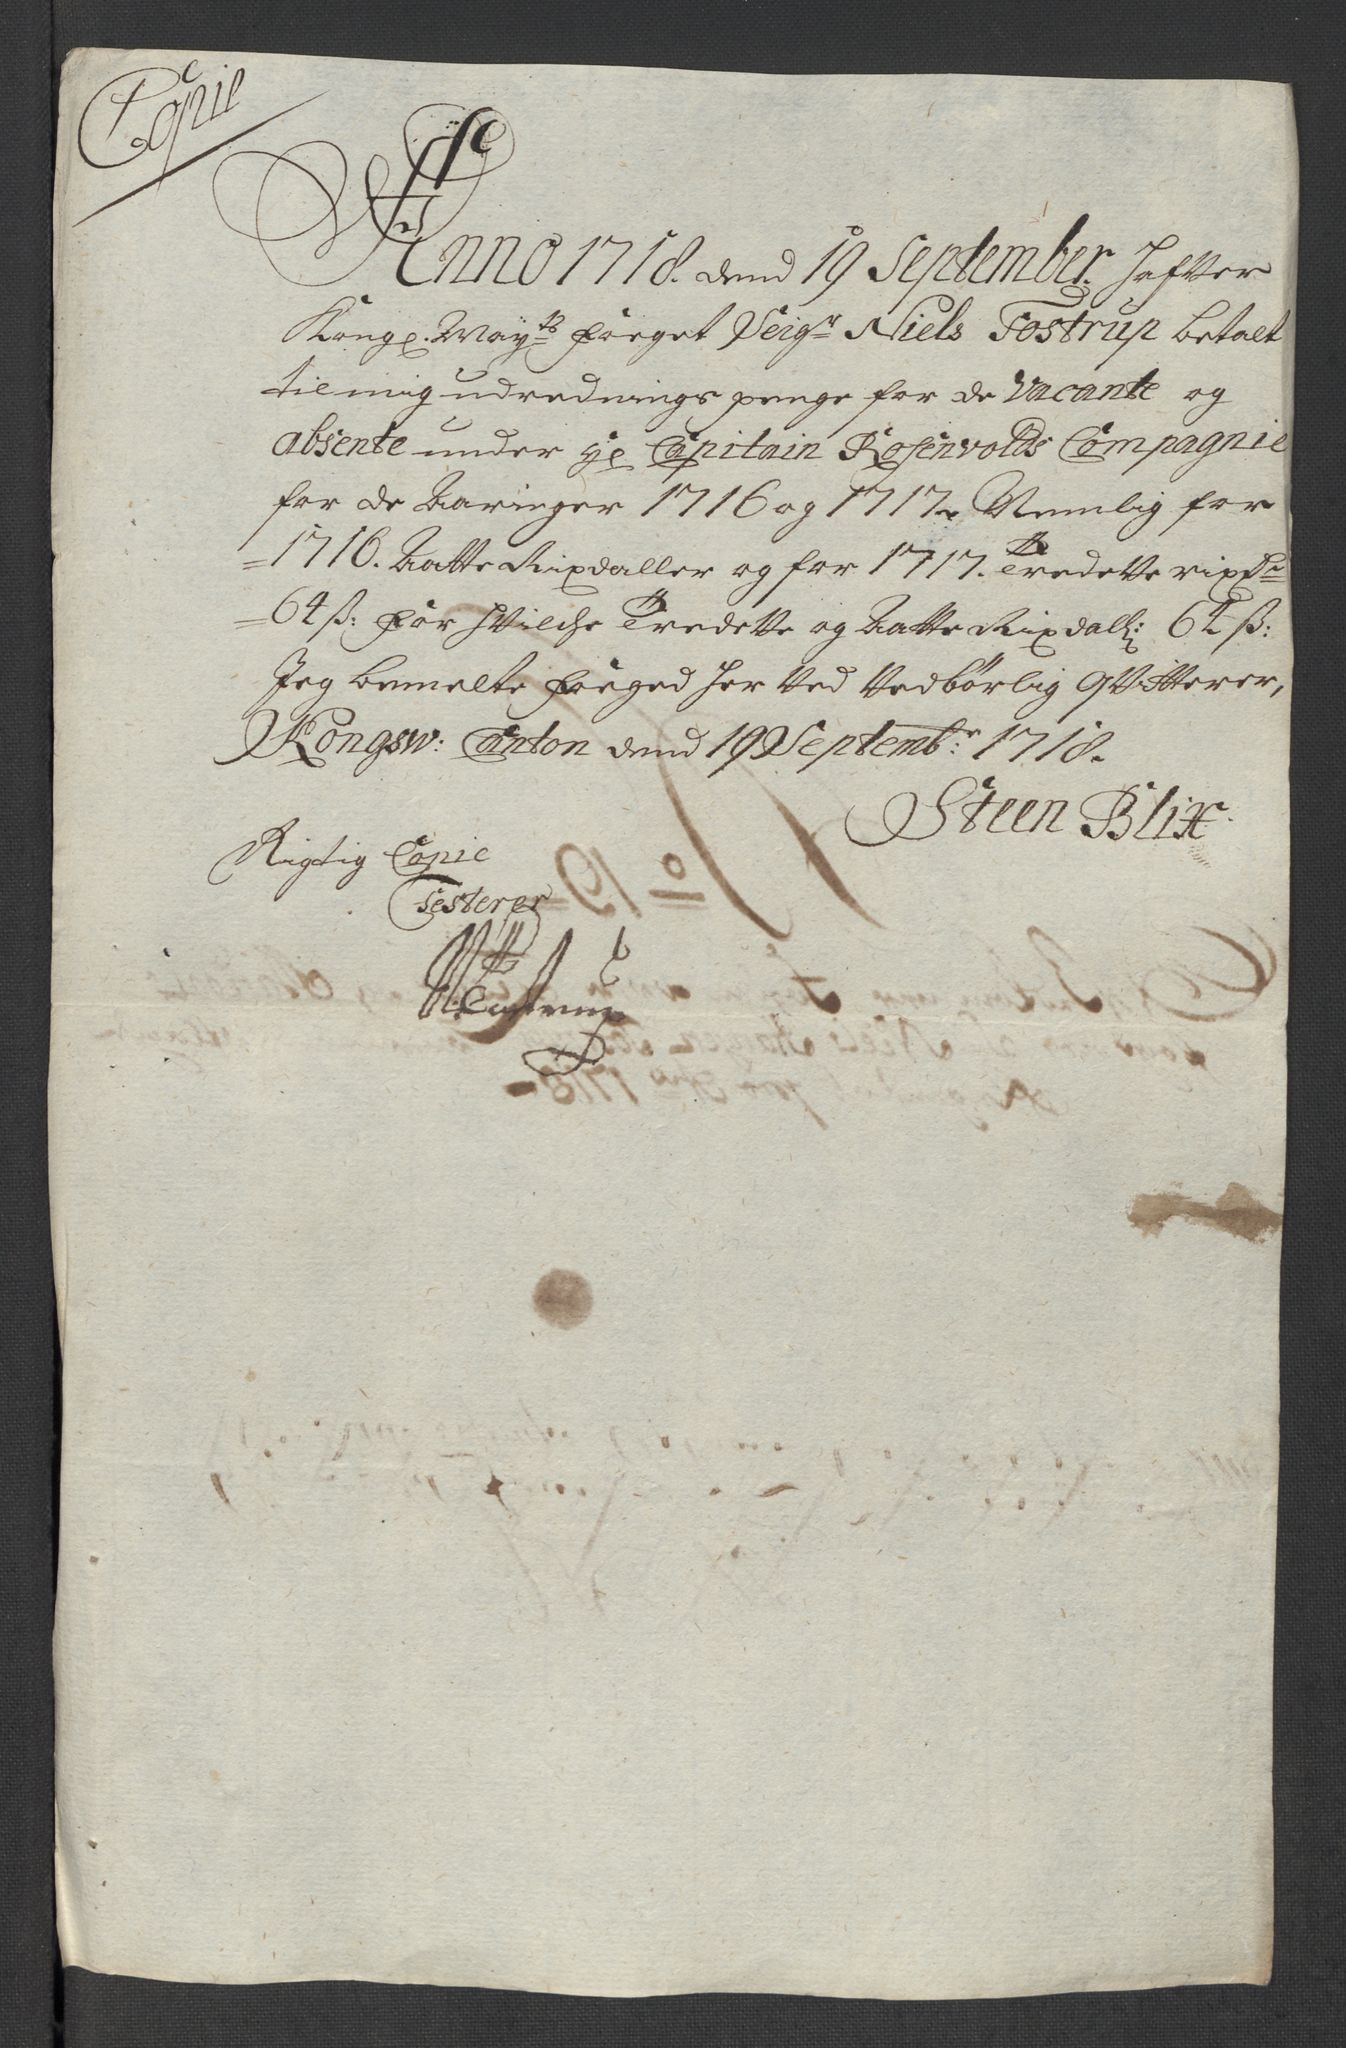 Copie
Anno 1718. dend 19 September. hafver
Kongl. May.ts foeget Seig.r Niels Tostrup betalt
til mig udrednings penge for de vacante og
absente under Hr Capitain Rosenvolds Compagnie
for de Aaringer 1716 og 1717. Nemlig for
=1716. Aatte Rixdaller og for 1717. Tredette rixdr
=64 ß: for hvilche Tredette og Aatte Rixdall: 64 ß:
Jeg bemelte foeged her ved vedbörlig qvitterer,
Kongsw: Canton dend 19 Septembr: 1718.
Steen Blix
Rigtig Copie
Testerer
NTostrup
No 19